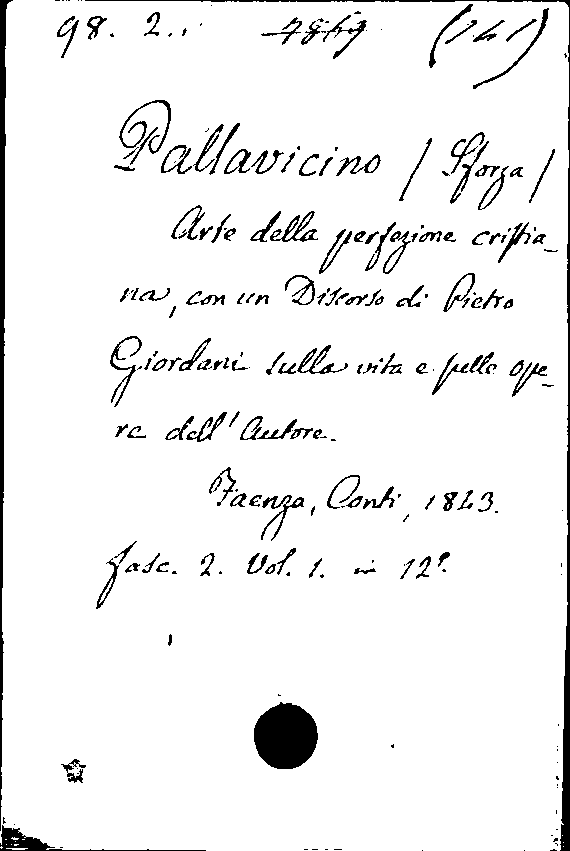 98. 2.. 4869 (141)
Pallavicino / Sforza /
Arte della perfezione cristia-
na, con un Discorso di Pietro
Giordani sulla vita e sulle ope-
re dell'Autore.
Faenza, Conti, 1843.
fasc. 2. Vol. 1. in 12°.